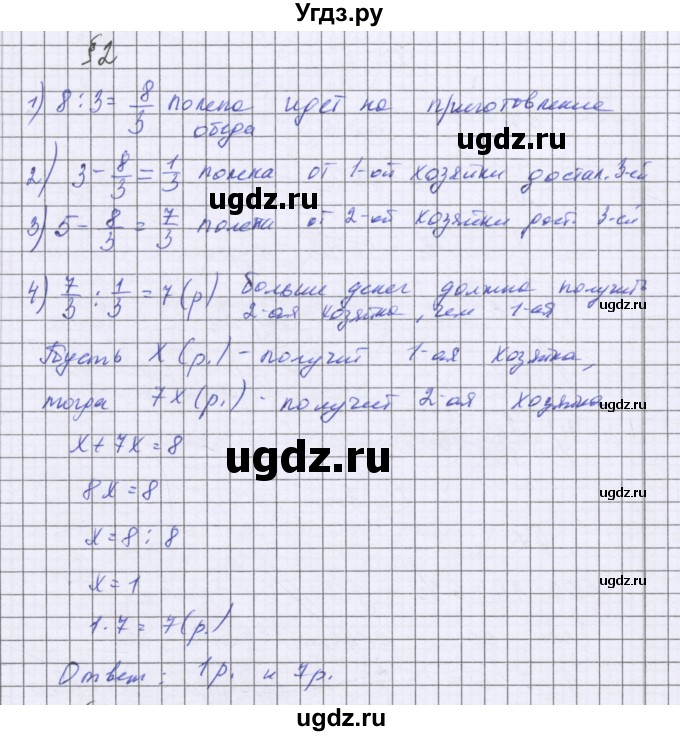 Угдз.ру
§2
1) 8 : 3 = 8/3 полена идёт на приготовление
обеда
ugdz.ru
2) 3 - 8/3 = 1/3 полена от 1-ой хозяйки достал. 3-ей
ugdz.ru
3) 5 - 8/3 = 7/3 полена от 2-ой хозяйки дост. 3-ей
4) 7/3 : 1/3 = 7 (р) больше денег должна получить
2-ая хозяйка, чем 1-ая
ugdz.ru
Пусть х (р.) - получит 1-ая хозяйка,
тогда 7х (р.) - получит 2-ая хозяйка
ugdz.ru
х + 7х = 8
ugdz.ru
8х = 8
ugdz.ru
х = 8 : 8
х = 1
ugdz.ru
1 · 7 = 7 (р.)
Ответ: 1р. и 7р.
ugdz.ru
ugdz.ru